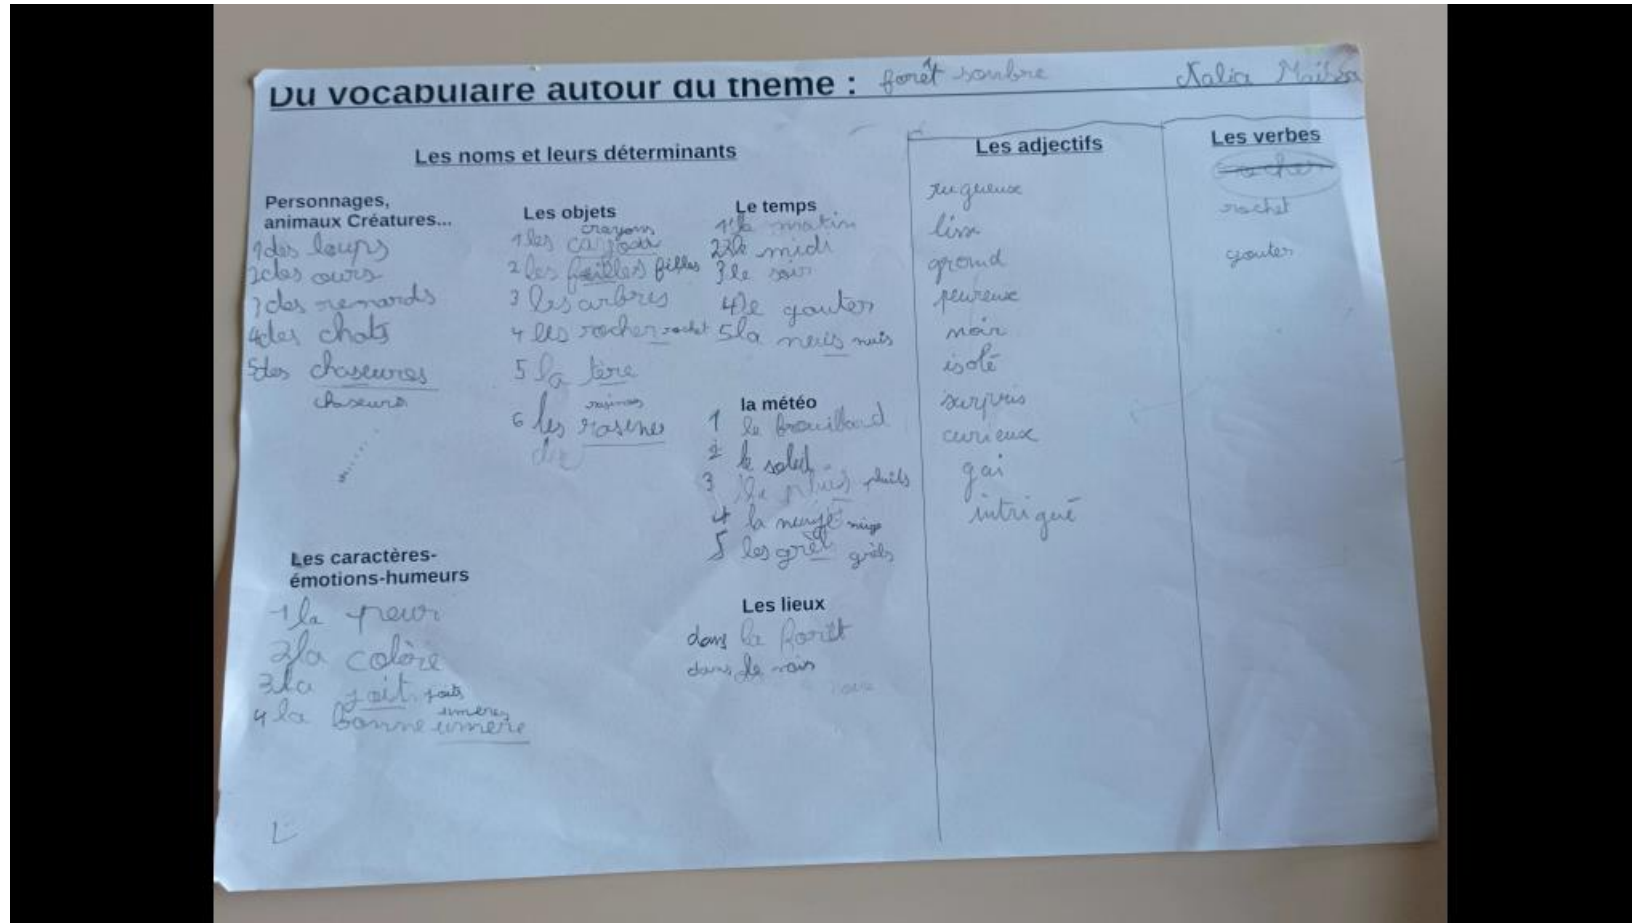 Du vocabulaire autour du thème : forêt sombre Nalia Maïssa
Les noms et leurs déterminants
Personnages,
animaux Créatures...
1 des loups
2 des ours
3 des renards
4 des chats
5 des chaseures
chaseurs
Les objets
crayons
1 les
2 les feilles filles
3 les arbres
4 les rocher rochet
5 la tère
rasines
6 les rasenes
Le temps
1 le matin
2 le midi
3 le soir
4 le gouter
5 la nuis
la météo
1 le brouillard
2 le soleil
3 la pluis pluits
4 la neige
5 les grèl grèls
Les caractères-
émotions-humeurs
1 la peur
2 la colère
3 la joit joits
umeres
4 la bonne umere
Les lieux
dans la forêt
dans le
Les adjectifs
rugueux
lisse
grond
peureux
noir
isolé
surpris
curieux
gai
intrigué
Les verbes
rocher
rochet
gouter